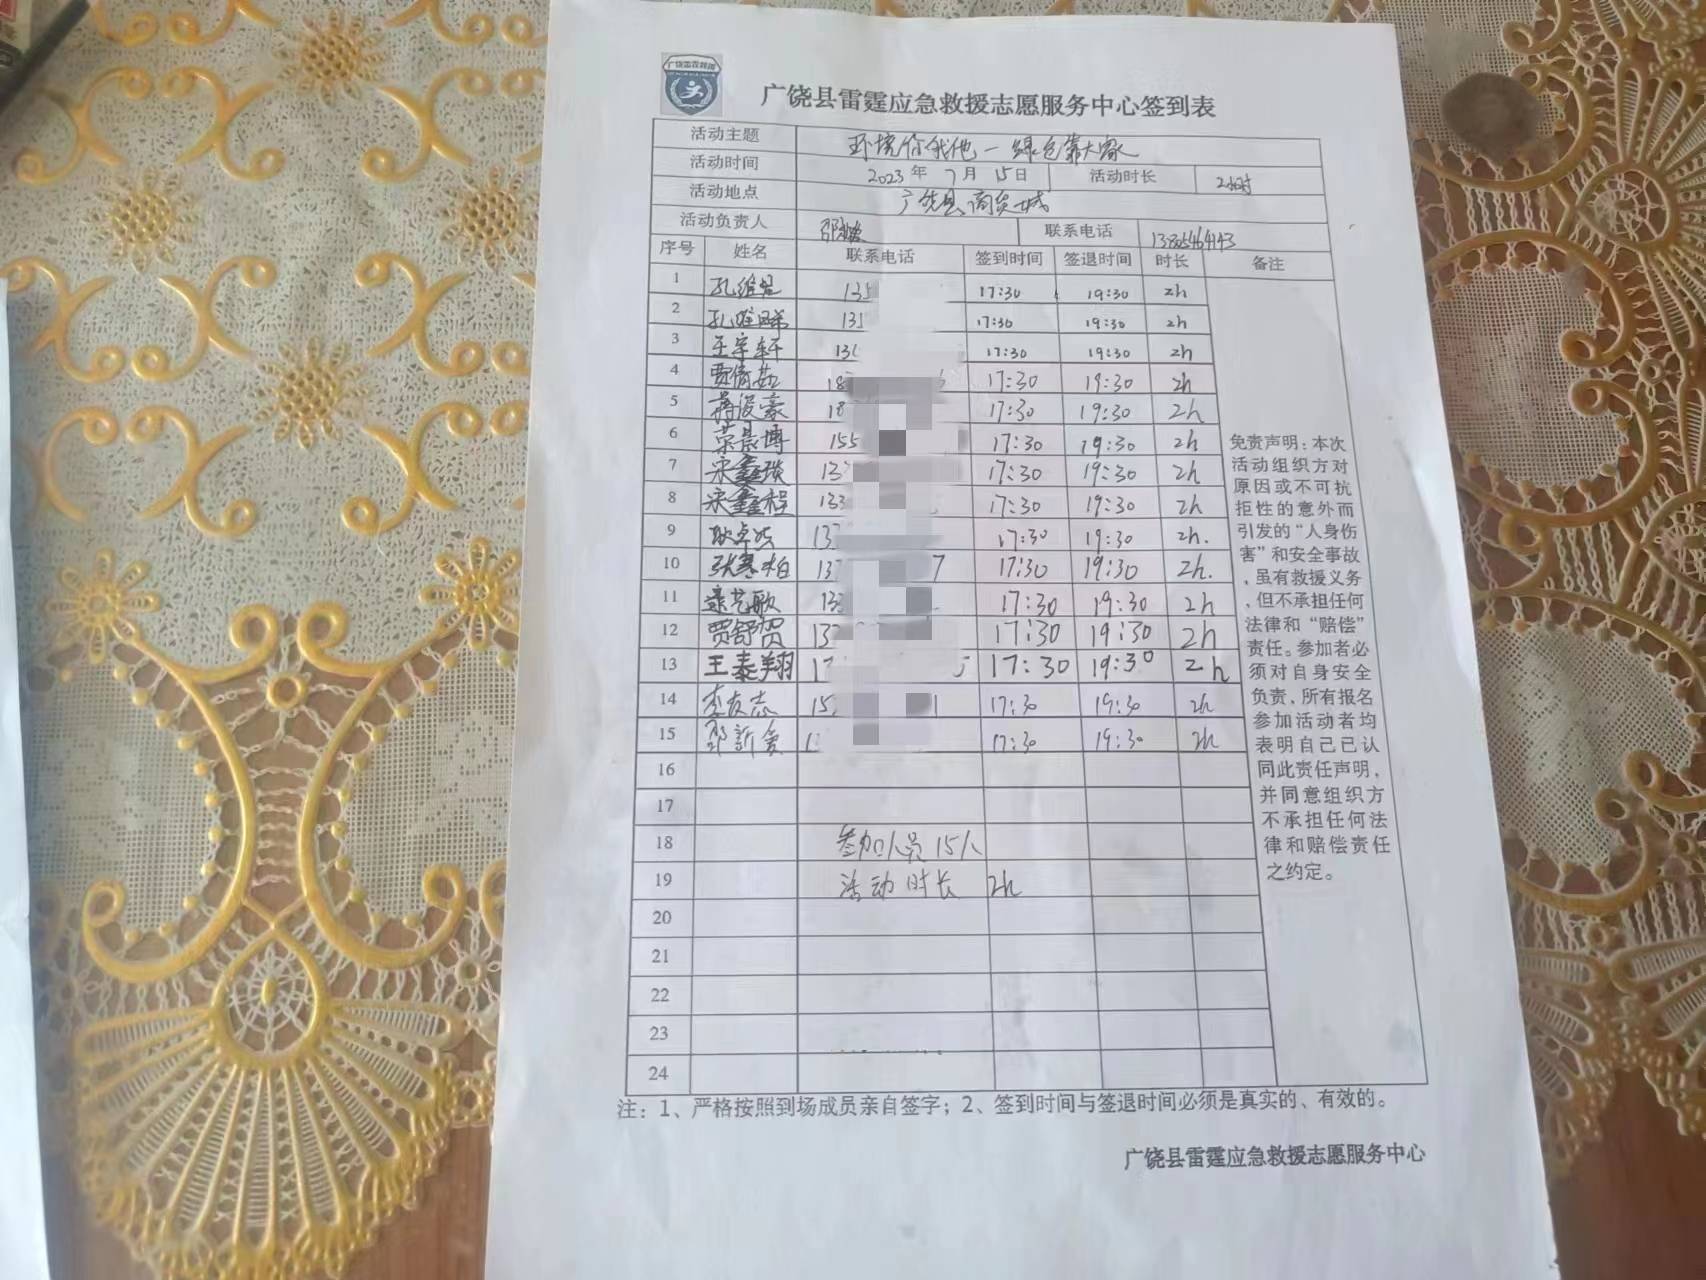 广饶县雷霆应急救援志愿服务中心签到表
活动主题 环境你我他一绿色靠大家
活动时间 2023年 7月 15日 活动时长 2小时
活动地点 广饶县商贸城
活动负责人 联系电话 13805464143
序号 姓名 联系电话 签到时间 签退时间 时长 备注
1 135 17:30 19:30 2h
2 135 17:30 19:30 2h
3 王宇轩 136 17:30 19:30 2h
4 贾倩茹 18 17:30 19:30 2h
5 蒋俊豪 18 17:30 19:30 2h
6 荣景博 155 17:30 19:30 2h
7 宋鑫琰 137 17:30 19:30 2h
8 宋鑫程 133 17:30 19:30 2h
9 耿卓然 137 17:30 19:30 2h.
10 张寒柏 137 7 17:30 19:30 2h.
11 艺歌 133 17:30 19:30 2h
12 贾舒贺 137 17:30 19:30 2h
13 王泰翔 17:30 19:30 2h
14 李友志 15 1 17:30 19:30 2h
15 17:30 19:30 2h
16
17
18 参加人员15人
19 活动时长 2h
20
21
22
23
24
免责声明：本次
活动组织方对
原因或不可抗
拒性的意外而
引发的“人身伤
害”和安全事故
，虽有救援义务
，但不承担任何
法律和“赔偿”
责任。参加者必
须对自身安全
负责，所有报名
参加活动者均
表明自己已认
同此责任声明，
并同意组织方
不承担任何法
律和赔偿责任
之约定。
注：1、严格按照到场成员亲自签字；2、签到时间与签退时间必须是真实的、有效的。
广饶县雷霆应急救援志愿服务中心